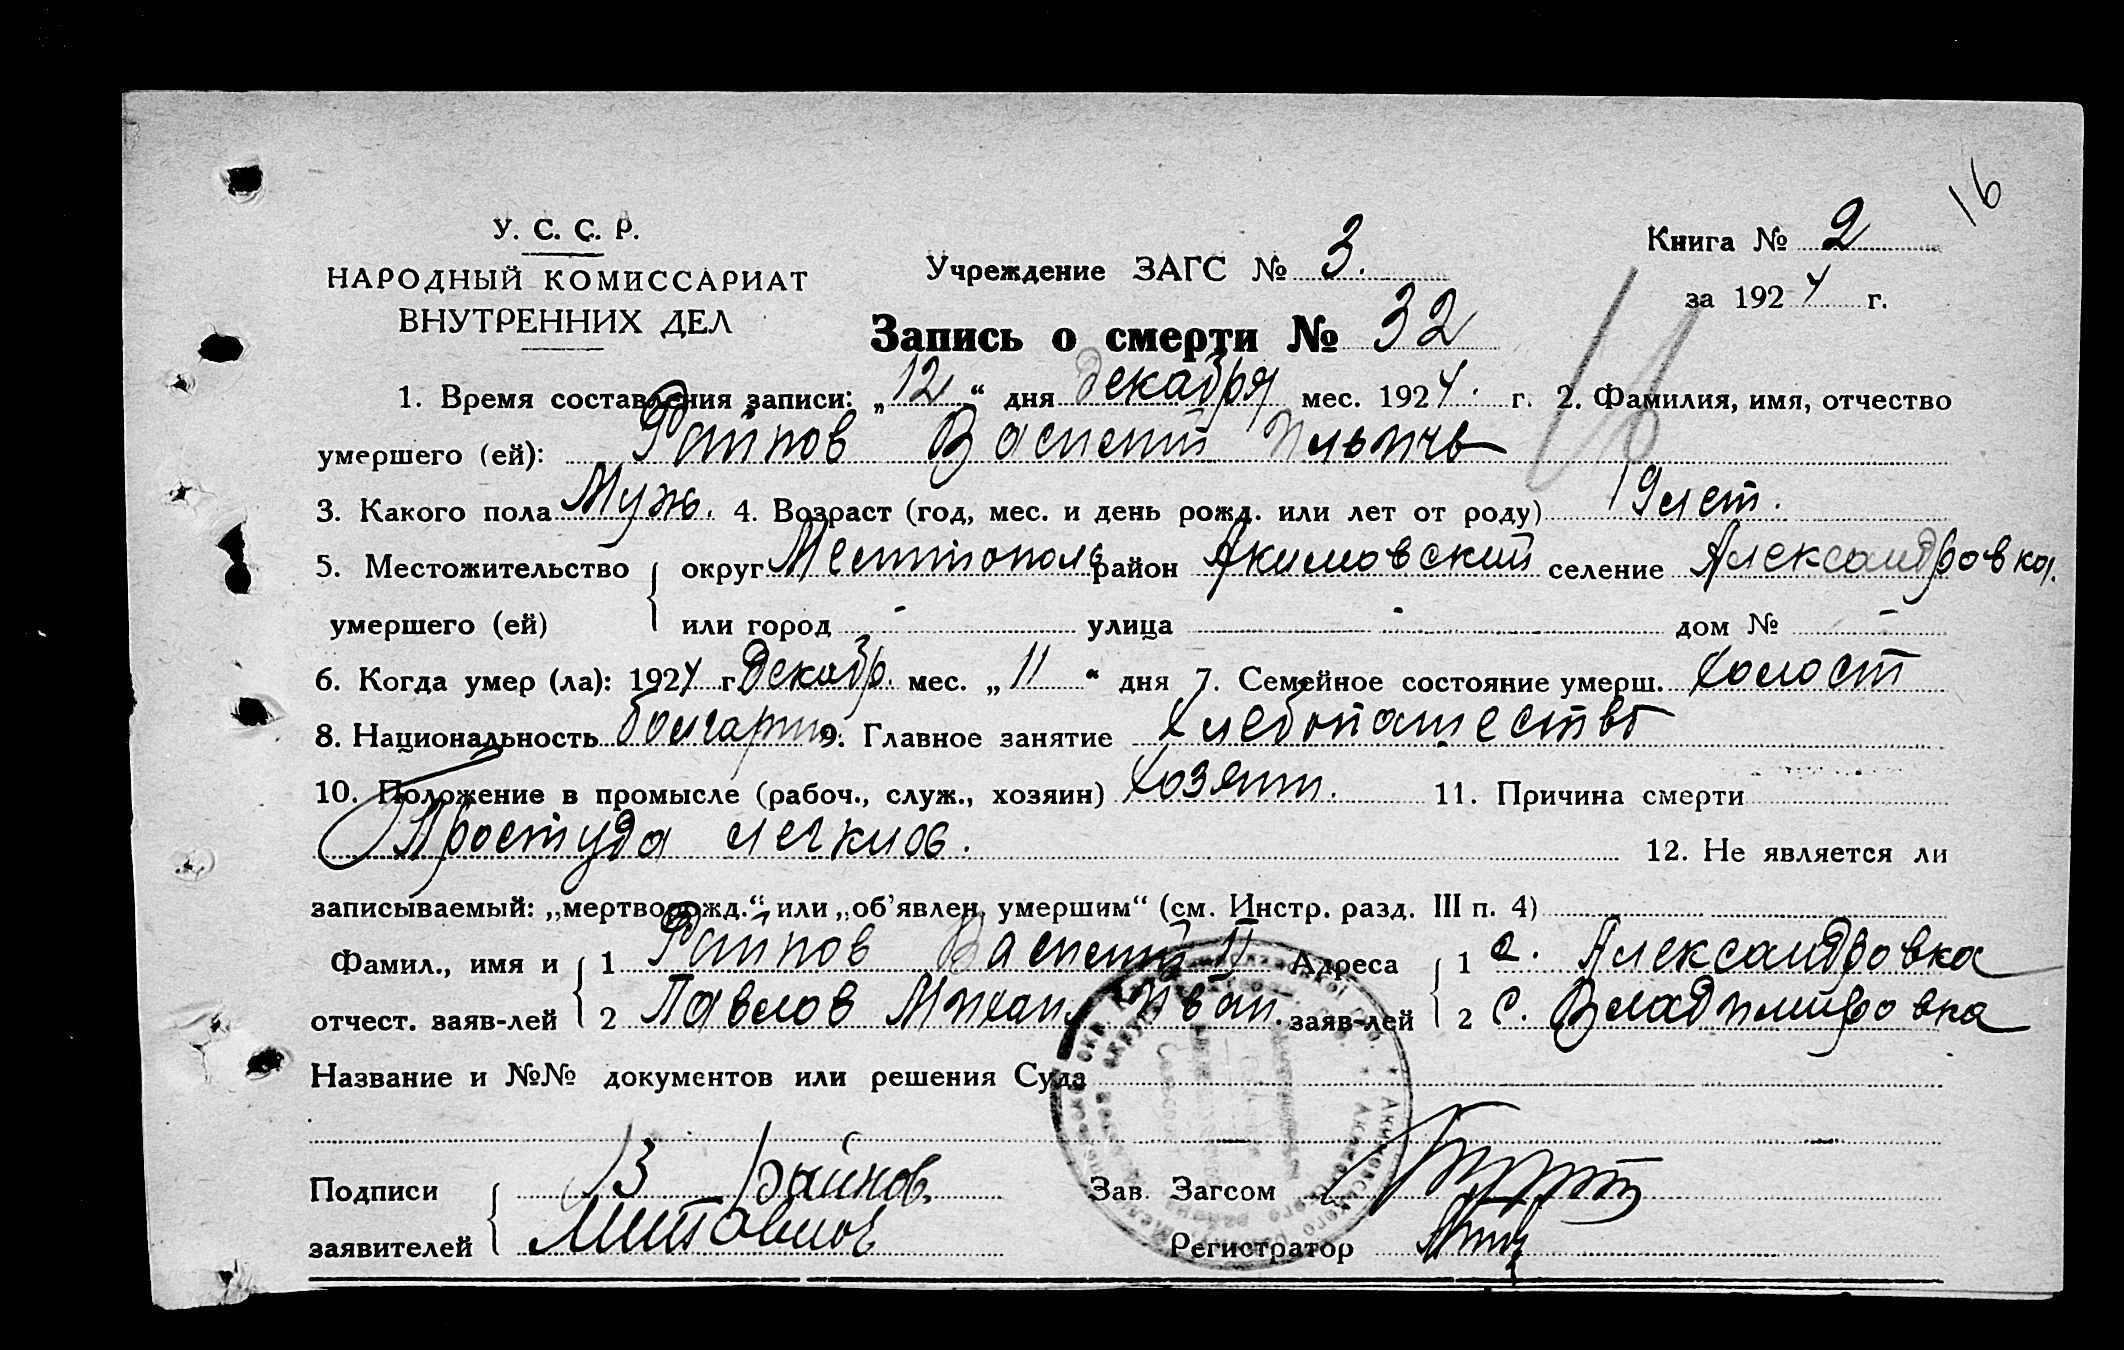 16
У. С. С. Р.
НАРОДНЫЙ КОМИССАРИАТ
ВНУТРЕННИХ ДЕЛ
Учреждение ЗАГС № 3.
Книга № 2
за 1924 г.
Запись о смерти № 32
1. Время составления записи: „12“ дня декабря мес. 1924. г. 2. Фамилия, имя, отчество
умершего (ей): Райнов Василий Ильичь
3. Какого пола Мужь. 4. Возраст (год, мес. и день рожд. или лет от роду) 19 лет.
5. Местожительство округ Мелитополь район Акимовский селение Александровка.
умершего (ей) или город - улица - дом № -
6. Когда умер (ла): 1924 г. Декабр. мес. „11“ дня 7. Семейное состояние умерш. холост
8. Национальность болгарин 9. Главное занятие хлебопашество
10. Положение в промысле (рабоч., служ., хозяин) хозяин. 11. Причина смерти
Простуда легких.
12. Не является ли
записываемый: „мертворожд.“ или „об'явлен. умершим“ (см. Инстр. разд. III п. 4)
Фамил., имя и 1 Райнов Василий И Адреса 1 с. Александровка
отчест. заяв-лей 2 Павлов Михаил Иван. заяв-лей 2 с. Владимировка
Название и №№ документов или решения Суда
Подписи В Райнов Зав. Загсом
заявителей Регистратор